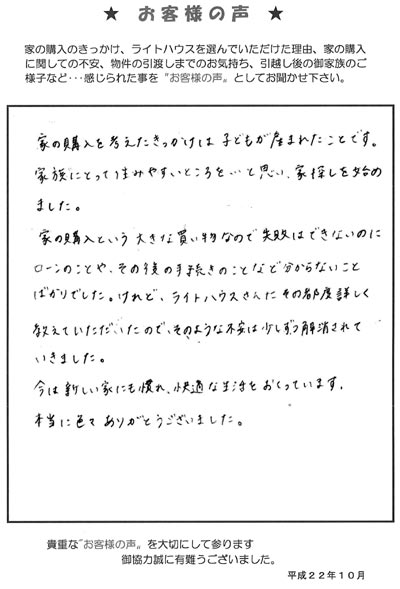 ★ お客様の声 ★
家の購入のきっかけ、ライトハウスを選んでいただけた理由、家の購入
に関しての不安、物件の引渡しまでのお気持ち、引越し後の御家族のご
様子など・・・感じられた事を“お客様の声〟としてお聞かせ下さい。
家の購入を考えたきっかけは子どもが産まれたことです。
家族にとって住みやすいところを…と思い、家探しを始め
ました。
家の購入という大きな買い物なので失敗はできないのに
ローンのことや、その後の手続きのことなど分からないこと
ばかりでした。けれど、ライトハウスさんにその都度詳しく
教えていただいたので、そのような不安は少しずつ解消されて
いきました。
今は新しい家にも慣れ、快適な生活をおくっています。
本当に色々ありがとうございました。
貴重な“お客様の声〟を大切にして参ります
御協力誠に有難うございました。
平成22年10月